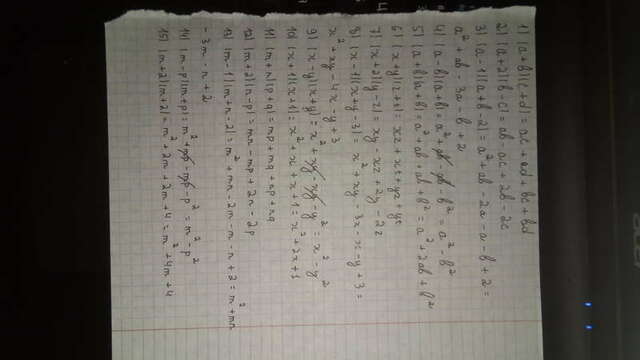 1) (a+b)(c+d) = ac + ad + bc + bd
2) (a+2)(b-c) = ab - ac + 2b - 2c
3) (a-1)(a+b-2) = a² + ab - 2a - a - b + 2 =
a² + ab - 3a - b + 2
4) (a-b)(a+b) = a² + ab - ab - b² = a² - b²
5) (a+b)(a+b) = a² + ab + ab + b² = a² + 2ab + b²
6) (x+y)(z+t) = xz + xt + yz + yt
7) (x+2)(y-z) = xy - xz + 2y - 2z
8) (x-1)(x+y-3) = x² + xy - 3x - x - y + 3 =
x² + xy - 4x - y + 3
9) (x-y)(x+y) = x² + xy - xy - y² = x² - y²
10) (x+1)(x+1) = x² + x + x + 1 = x² + 2x + 1
11) (m+n)(p+q) = mp + mq + np + nq
12) (m+2)(n-p) = mn - mp + 2n - 2p
13) (m-1)(m+n-2) = m² + mn - 2m - m - n + 2 = m² + mn
- 3m - n + 2
14) (m-p)(m+p) = m² + mp - mp - p² = m² - p²
15) (m+2)(m+2) = m² + 2m + 2m + 4 = m² + 4m + 4